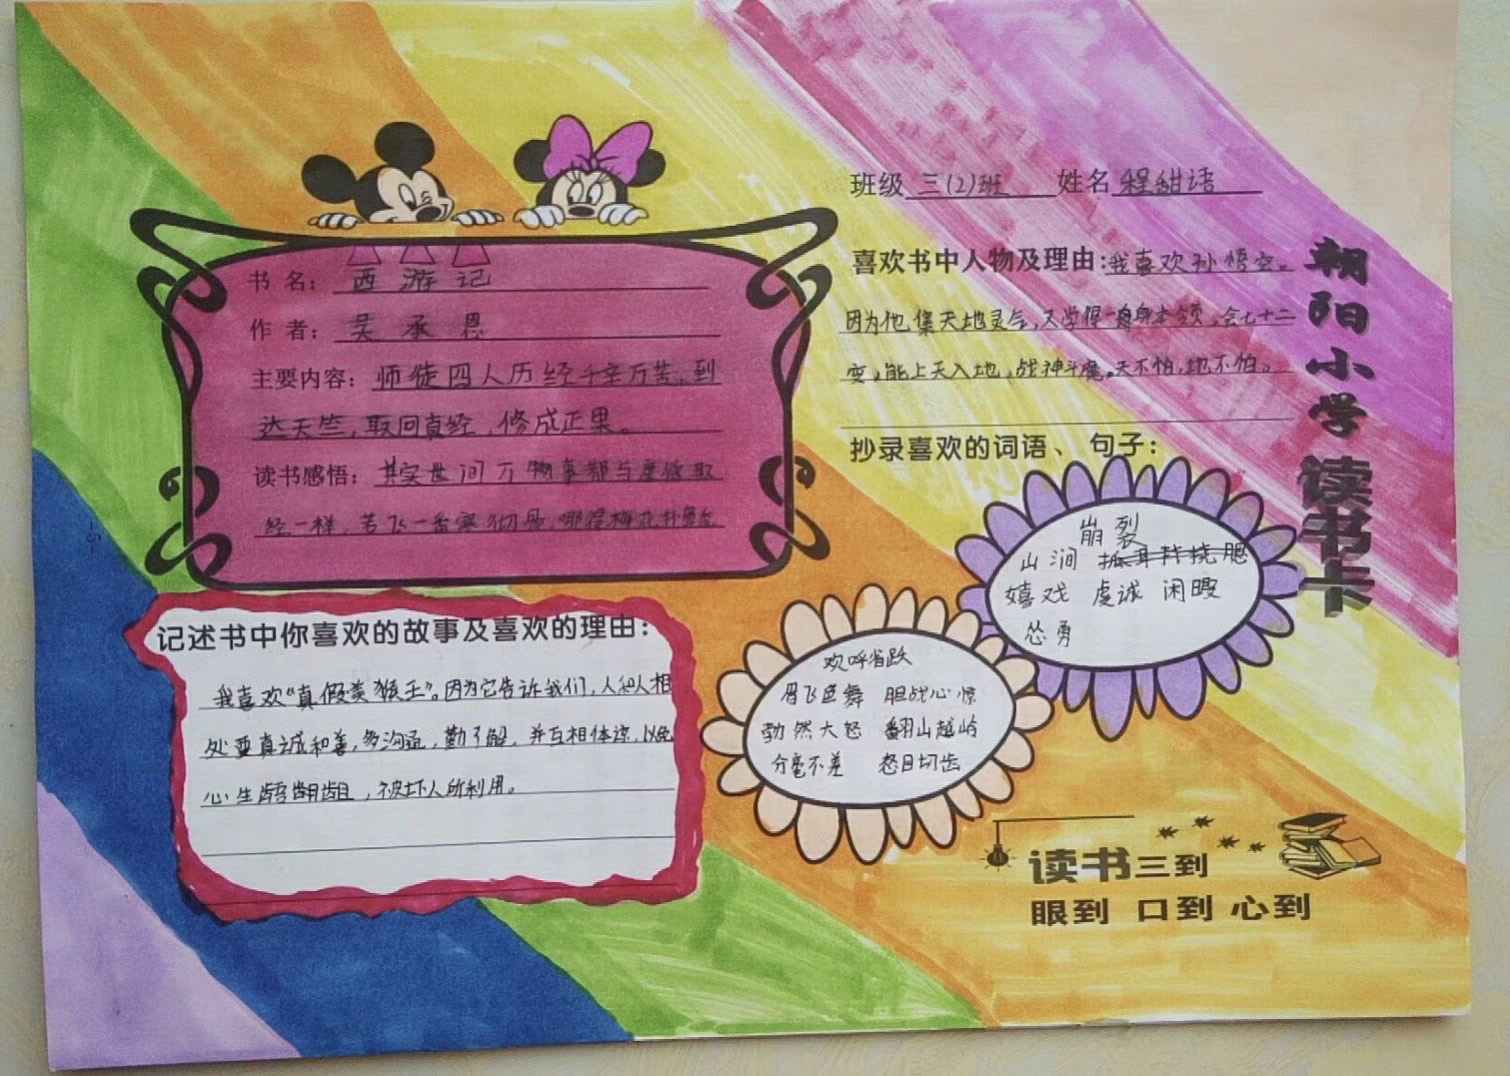 班级 三(2)班 姓名 程甜语
朝阳小学 读书卡
书 名： 西游记
作 者： 吴承恩
主要内容： 师徒四人历经千辛万苦，到
达天竺，取回真经，修成正果。
读书感悟： 其实世间万物事都与唐僧取
经一样，若飞一番寒彻骨，哪得梅花扑鼻香
喜欢书中人物及理由：我喜欢孙悟空。
因为他集天地灵气，又学得一身本领，会七十二
变，能上天入地，战神斗魔。天不怕，地不怕。
抄录喜欢的词语、句子：
崩裂
山涧 抓耳挠腮
嬉戏 虔诚 闲暇
怂勇
欢呼雀跃
眉飞色舞 胆战心惊
勃然大怒 翻山越岭
分毫不差 日切齿
记述书中你喜欢的故事及喜欢的理由：
我喜欢“真假美猴王”。因为它告诉我们，人和人相
处要真诚和善，多沟通，勤了解，并互相体谅，以免
心生龉龃，被坏人所利用。
读书三到
眼到 口到 心到